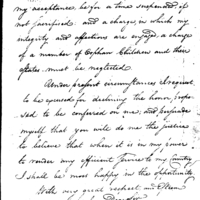 my acceptance be for a time suspended if
not sacrificed. and a charge, in which my
integrity and affections are engaged a charge
of a number of Orphan Children and their
affairs must be neglected.
Under present circumstances I request
to be excused for declining the honor propo
sed to be conferred on me, and persuade
myself that you will do me the justice
to believe that when it is in my power
to render my efficient service to my Country
I shall be most happy in the opportunity
With very great respect and Esteem